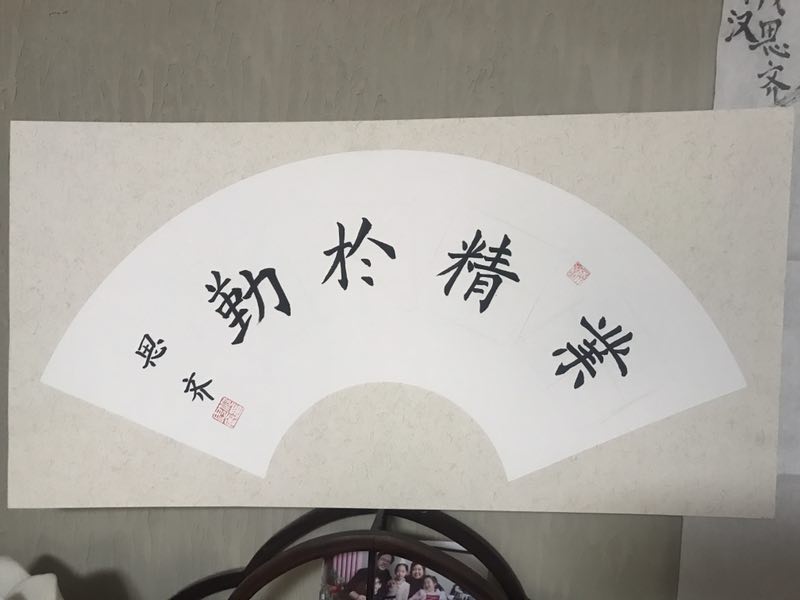 業精於勤
思齐
汉思齐